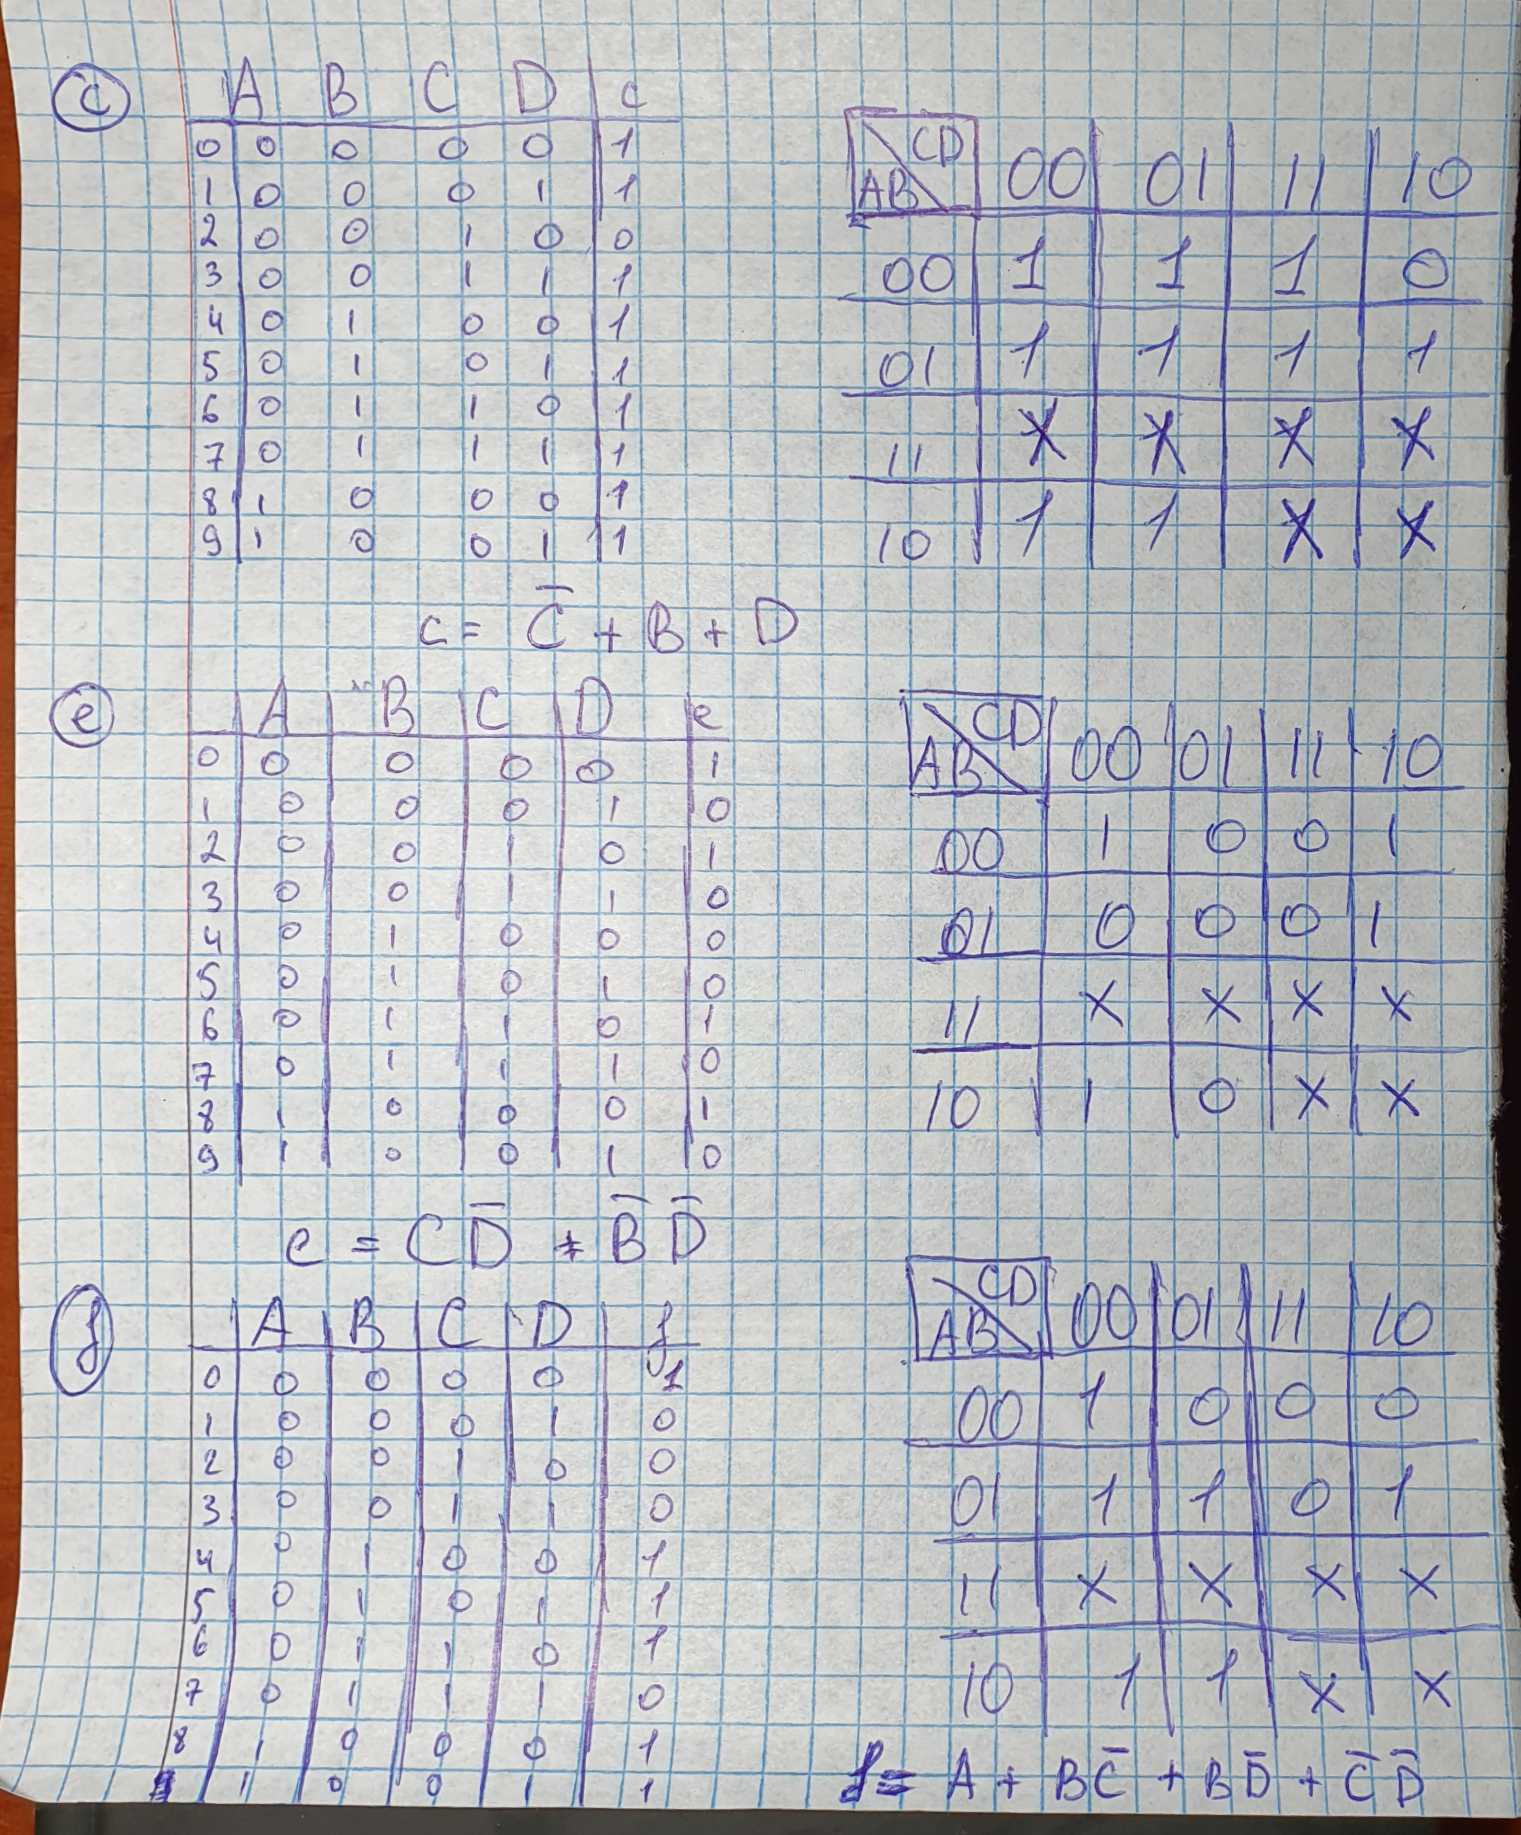 c
A B C D c
0 0 0 0 0 1
1 0 0 0 1 1
2 0 0 1 0 0
3 0 0 1 1 1
4 0 1 0 0 1
5 0 1 0 1 1
6 0 1 1 0 1
7 0 1 1 1 1
8 1 0 0 0 1
9 1 0 0 1 1
CD
AB 00 01 11 10
00 1 1 1 0
01 1 1 1 1
11 X X X X
10 1 1 X X
c = C̅ + B + D
e
A B C D e
0 0 0 0 0 1
1 0 0 0 1 0
2 0 0 1 0 1
3 0 0 1 1 0
4 0 1 0 0 0
5 0 1 0 1 0
6 0 1 1 0 1
7 0 1 1 1 0
8 1 0 0 0 1
9 1 0 0 1 0
CD
AB 00 01 11 10
00 1 0 0 1
01 0 0 0 1
11 X X X X
10 1 0 X X
e = C D̅ + B̅ D̅
f
A B C D f
0 0 0 0 0 1
1 0 0 0 1 0
2 0 0 1 0 0
3 0 0 1 1 0
4 0 1 0 0 1
5 0 1 0 1 1
6 0 1 1 0 1
7 0 1 1 1 0
8 1 0 0 0 1
9 1 0 0 1 1
CD
AB 00 01 11 10
00 1 0 0 0
01 1 1 0 1
11 X X X X
10 1 1 X X
f = A + B C̅ + B D̅ + C̅ D̅